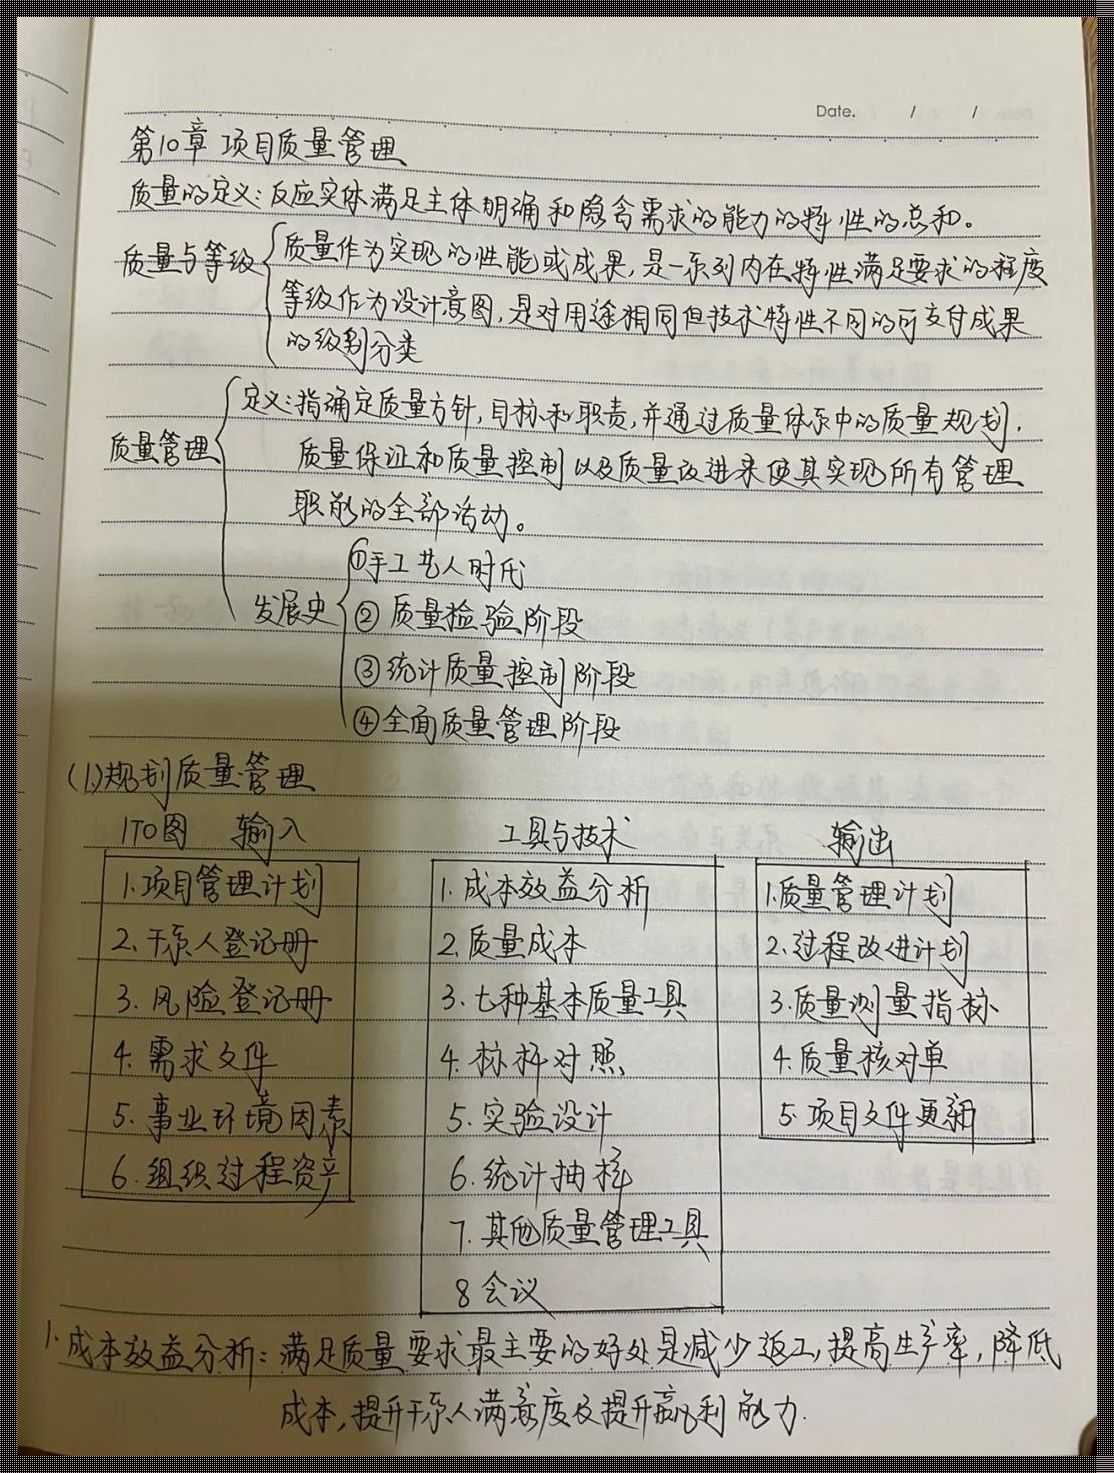 Date. / /
第10章 项目质量管理
质量的定义:反应实体满足主体明确和隐含需求的能力的特性的总和。
质量与等级
质量作为实现的性能或成果,是一系列内在特性满足要求的程度
等级作为设计意图,是对用途相同但技术特性不同的可交付成果
的级别分类
质量管理
定义:指确定质量方针,目标和职责,并通过质量体系中的质量规划,
质量保证和质量控制以及质量改进来使其实现所有管理
职能的全部活动。
发展史
①手工艺人时代
②质量检验阶段
③统计质量控制阶段
④全面质量管理阶段
(1)规划质量管理
ITO图 输入
1.项目管理计划
2.干系人登记册
3.风险登记册
4.需求文件
5.事业环境因素
6.组织过程资产
工具与技术
1.成本效益分析
2.质量成本
3.七种基本质量工具
4.标杆对照
5.实验设计
6.统计抽样
7.其他质量管理工具
8会议
输出
1.质量管理计划
2.过程改进计划
3.质量测量指标
4.质量核对单
5.项目文件更新
1.成本效益分析:满足质量要求最主要的好处是减少返工,提高生产率,降低
成本,提升干系人满意度及提升赢利能力.